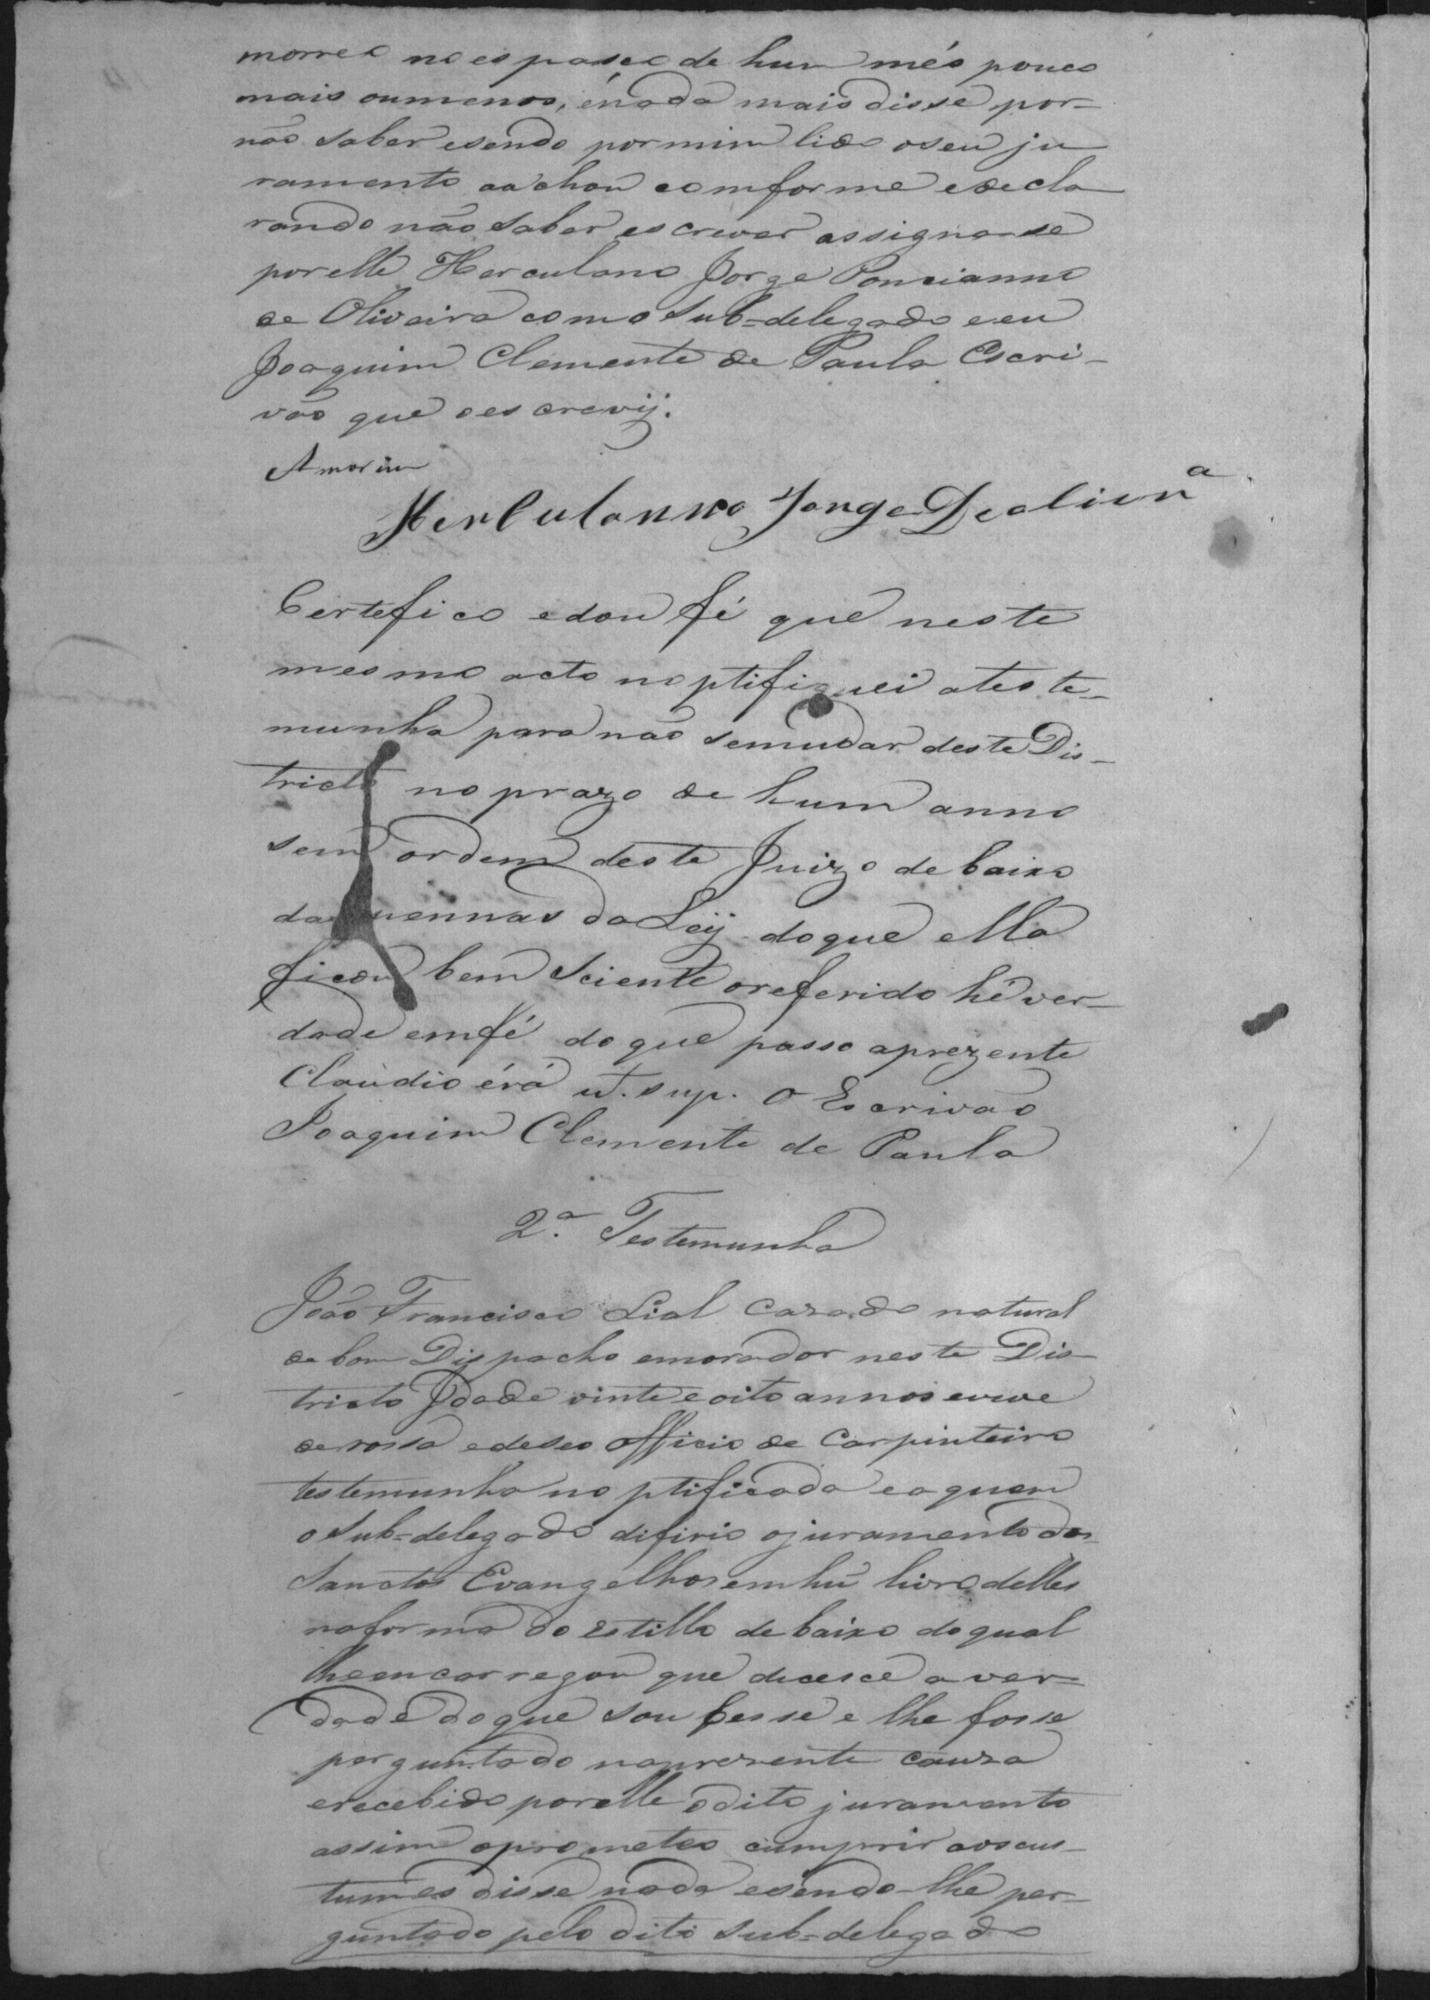 morreo no espasso de hum més pouco
mais oumenos, énada mais disse por-
não saber esendo pormim lido oseu ju
ramento oachou comforme edecla
rando não saber escrever assignarse
porelle Herculano Jorge Poncianno
de Oliveira como Sub=delegado eeu
Joaquim Clemente de Paula Escri-
vão que oescrevij.
Amorim
Herculanno Jorge Deoliurª
Certefico edou fé que neste
mesmo acto noptifiquei ateste-
munha para não semudar deste Dis-
tricto no prazo de hum anno
sem ordem deste Juizo debaixo
das pennas da Leij doque ella
ficou bem Sciente oreferido hé ver-
dade emfé do que passo aprezente
Claudio érá ut. sup. O Escrivão
Joaquim Clemente de Paula
2.ª Testemunha
João Francisco Lial Cazado natural
de bom Dispacho emorador neste Dis-
tricto Idade vinte eoito annos evive
de rossa edeseo officio de Carpinteiro
testemunha noptificada eaquem
o Sub=delegado difirio ojuramento dos
Sanctos Evangelhos emhũ livro delles
naforma do Estillo debaixo doqual
lheencarregou que dicesce a ver=
dade doque soubesse e lhe fosse
perguntado naprezente cauza
erecebido porelle odito juramento
assim oprometeo cumprir aoscus-
tumes disse nada esendo-lhe per-
guntado pelo dito Sub=delegado